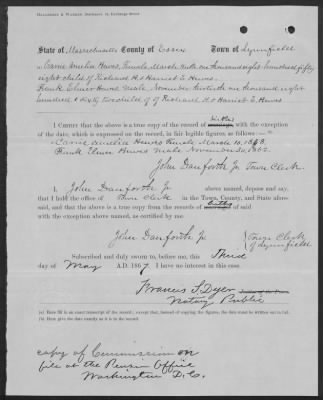 State of Massachusetts County of Essex Town of Lynnfield
Carrie Amelia Hewes Female March tenth one thousand eight hundred fifty
eight child of Richard H & Harriet E Hewes
Frank Elmer Hewes Male November thirtieth one thousand eight
hundred & sixty two child of Richard H & Harriet E Hewes
I CERTIFY that the above is a true copy of the record of births, with the exception
of the date, which is expressed on the record, in fair legible figures, as follows:
Carrie Amelia Hewes Female March 10, 1858
Frank Elmer Hewes Male November 30, 1862
John Danforth Jr Town Clerk
I, John Danforth Jr above named, depose and say,
that I hold the office of Town Clerk in the Town, County, and State afore-
said, and that the above is a true copy from the records of births of said
with the exception above named, as certified by me
John Danforth Jr Town Clerk
of Lynnfield
Subscribed and duly sworn to, before me, this Third
day of May A.D. 1867 I have no interest in this case.
Francis S Dyer
Notary Public
(a) Here fill in an exact transcript of the record, except that, instead of copying the figures, the date must be written out in full.
(b) Here give the date exactly as it is in the record.
copy of Commission on
file at the Pension Office
Washington D.C.